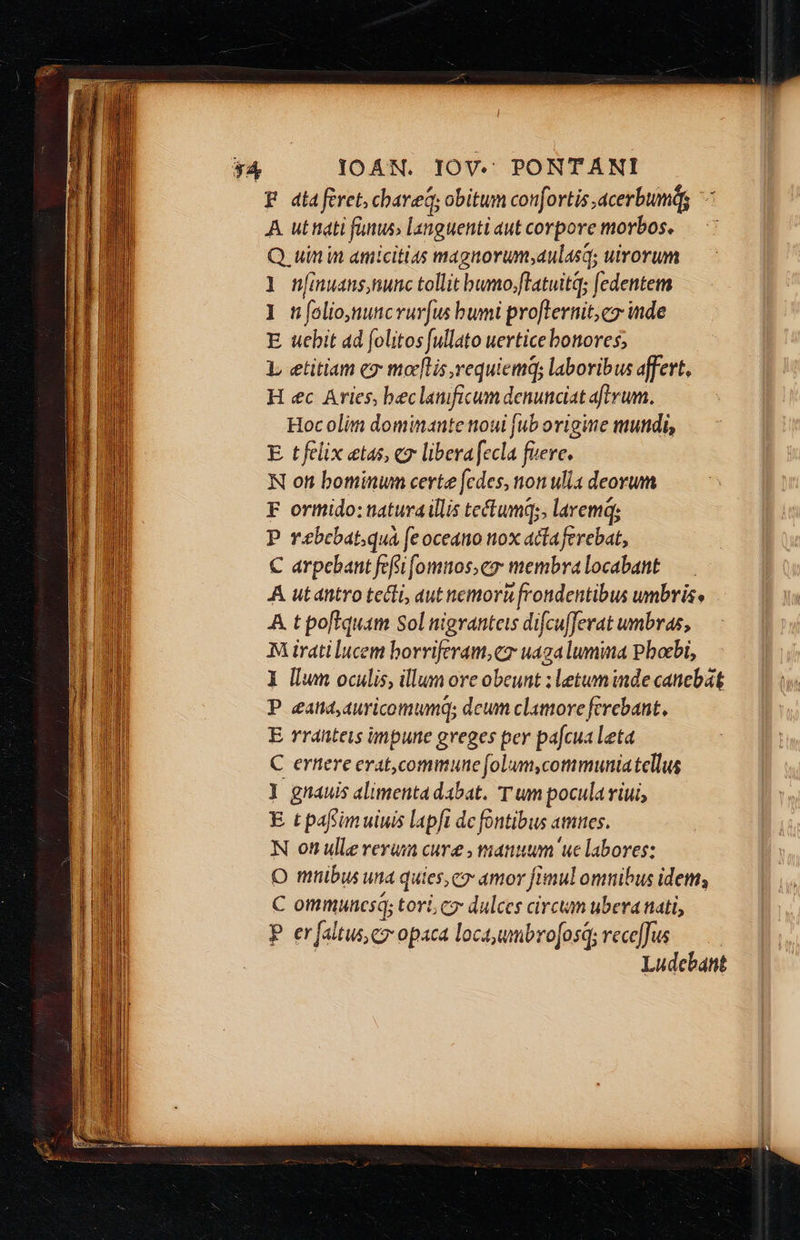 34 IOAN. IOV. PONTANI
F ata feret, charæq; obitum consortis, acerbumq;
A ut nati funus, languenti aut corpore morbos.
Q uin in amicitias magnorum, aulasq; uirorum
I nsinuans, nunc tollit humo, statuitq; sedentem
I n solio, nunc rursus humi prosternit, & inde
E uehit ad solitos sullato uertice honores,
L ætitiam & mœstis, requiemq; laboribus affert.
H æc Aries, hæc lanificum denunciat astrum.
Hoc olim dominante noui sub origine mundi,
E t felix ætas, & libera secla fuere.
N on hominum certæ sedes, non ulla deorum
F ormido: natura illis tectumq;, laremq;
P ræbebat, quà se oceano nox acta ferebat,
C arpebant fessi somnos, & membra locabant
A ut antro tecti, aut nemorū frondentibus umbris.
A t postquam Sol nigranteis discusserat umbras,
M irati lucem horriferam, & uaga lumina Phœbi,
I llum oculis, illum ore obeunt; lętum inde canebāt
P æana, auricomumq; deum clamore ferebant.
E rranteis impune greges per pascua læta
C ernere erat, commune solum, communia tellus
I gnauis alimenta dabat. Tum pocula riui,
E t passim uiuis lapsi de fontibus amnes.
N on ullæ rerum curæ, manuum 'ue labores:
O mnibus una quies, & amor simul omnibus idem,
C ommunesq; tori, & dulces circum ubera nati,
P er saltus, & opaca loca, umbrososq; recessus
Ludebant